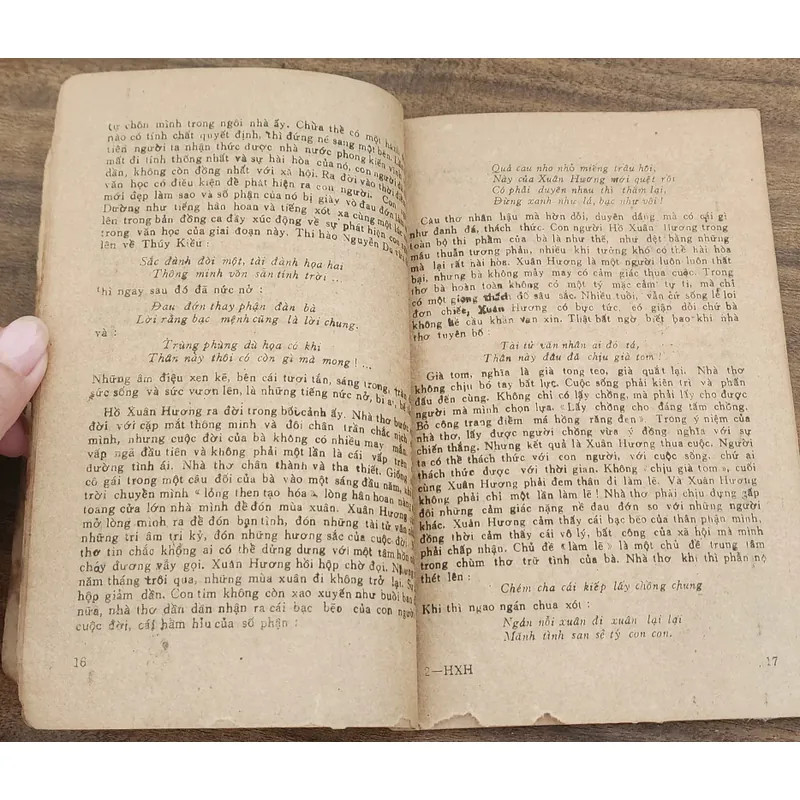 tự chôn mình trong ngôi nhà ấy. Chừa thề có một
nào có tính chất quyết định, thì đứng né sang một bên.
tiên người ta nhận thức được nhà nước phong kiến
mất đi tính thống nhất và sự hài hòa của nó, con người
dần, không còn đồng nhất với xã hội. Ra đời vào thời
văn học có điều kiện đề phát hiện ra con người. Con
mới đẹp làm sao và số phận của nó bị giày vò đau đớn
Dường như tiếng hân hoan và tiếng xót xa cùng một lúc
lên trong bản đồng ca đầy xúc động về sự phát hiện con
trong văn học của giai đoạn này. Thi hào Nguyễn Du
lên về Thúy Kiều :
Sắc đành đòi một, tài đành họa hai
Thông minh vốn sẵn tính trời ...
thì ngay sau đó đã nức nở :
Đau đớn thay phận đàn bà
Lời rằng bạc mệnh cũng là lời chung.
và :
Trùng phùng dù họa có khi
Thân này thôi có còn gì mà mong ! ...
Những âm điệu xen kẽ, bên cái tươi tắn, sáng trong,
sức sống và sức vươn lên, là những tiếng nức nở, bi
Hồ Xuân Hương ra đời trong bối cảnh ấy. Nhà thơ bước
đời với cặp mắt thông minh và đôi chân trần chắc nịch
mình, nhưng cuộc đời của bà không có nhiều may mắn
vấp ngã đầu tiên và không phải một lần là cái vấp trên
đường tình ái. Nhà thơ chân thành và tha thiết. Giống
cô gái trong một câu đối của bà vào một sáng đầu năm, khi
trời chuyền mình « lỏng then tạo hóa » lòng hân hoan nàng
toang cửa lớn nhà mình đề đón mùa xuân. Xuân Hương
mở lòng mình ra đề đón bạn tình, đón những tài tử văn
những tri âm tri kỷ, đón những hương sắc của cuộc đời
thơ tin chắc không ai có thề dửng dưng với một tâm hồn
cháy dương vẫy gọi. Xuân Hương hồi hộp chờ đợi. Nhưng
năm tháng trôi qua, những mùa xuân đi không trở lại. Sự
hộp giảm dần. Con tim không còn xao xuyến như buồi ban
nữa, nhà thơ dần dần nhận ra cái bạc bẽo của con người
cuộc đời, cái hầm hiu của số phận :
16
Quả cau nho nhỏ miếng trầu hôi,
Này của Xuân Hương mới quệt rồi
Có phải duyên nhau thì thắm lại,
Đừng xanh như lá, bạc như vôi !
Câu thơ nhân hậu mà hờn dỗi, duyên dáng mà có cái gì
như đanh đá, thách thức. Con người Hồ Xuân Hương trong
toàn bộ thi phẩm của bà là như thế, như dệt bằng những
mâu thuẫn tương phản, nhiều khi tưởng khó có thề hài hòa
mà lại rất hài hòa. Xuân Hương là một người luôn luôn thất
bại, nhưng bà không mảy may có cảm giác thua cuộc. Trong
thơ bà hoàn toàn không có một tý mặc cảm tự ti, mà chỉ
có một giọng thách đố sâu sắc. Nhiều tuổi, vẫn cứ sống lẻ loi
đơn chiếc, Xuân Hương có bực tức, có giận dỗi chứ bà
không hề cầu khẩn van xin. Thật bất ngờ biết bao khi nhà
thơ tuyên bố :
Tài tử văn nhân ai đó tá,
Thân này đâu đã chịu già tom !
Già tom, nghĩa là già tong teo, già quắt lại. Nhà thơ
không chịu bó tay bất lực. Cuộc sống phải kiên trì và phấn
đấu đến cùng. Không chỉ có lấy chồng, mà phải lấy cho được
người mà mình chọn lựa. « Lấy chồng cho đáng tấm chồng.
Bỏ công trang điểm má hồng răng đen » Trong ý niệm của
nhà thơ, lấy được người chồng vừa ý đồng nghĩa với sự
chiến thắng. Nhưng kết quả là Xuân Hương thua cuộc. Người
ta có thề thách thức với con người, với cuộc sống, chứ ai
thách thức được với thời gian. Không « chịu già tom », cuối
cùng Xuân Hương phải đem thân đi làm lẽ. Và Xuân Hương
không phải chỉ một lần làm lẽ ! Nhà thơ phải chịu đựng gấp
đôi những cảm giác nặng nề đau đớn so với những người
khác. Xuân Hương cảm thấy cái bạc bẽo của thân phận mình,
đồng thời cảm thấy cái vô lý, bất công của xã hội mà mình
phải chấp nhận. Chủ đề « làm lẽ » là một chủ đề trung tâm
trong chùm thơ trữ tình của bà. Nhà thơ khi thì phẫn nộ
thét lên :
Chém cha cái kiếp lấy chồng chung
Khi thì ngao ngán chua xót :
Ngán nỗi xuân đi xuân lại lại
Mảnh tình san sẻ tý con con.
2—HXH
17